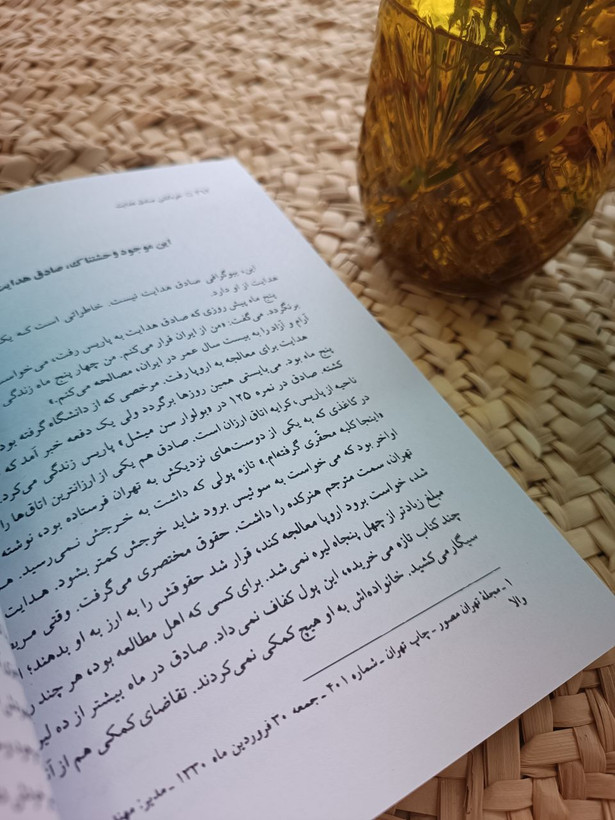 این موجود وحشتناک، صادق هدایت
این، بیوگرافی صادق هدایت نیست. خاطراتی است که یک
هدایت از او دارد.
پنج ماه پیش روزی که صادق هدایت به پاریس رفت، می‌خواست
برنگردد. می‌گفت: «من از ایران فرار می‌کنم. من چهار پنج ماه زندگی
آرام و آزاد را به بیست سال عمر در ایران، مصالحه می‌کنم.»
هدایت برای معالجه به اروپا رفت. مرخصی که از دانشگاه گرفته بود
پنج ماه بود. می‌بایستی همین روزها برگردد ولی یک دفعه خبر آمد که
کشته. صادق در نمره ۱۲۵ در «بولوار سن میشل» پاریس زندگی می‌کرد.
ناحیه از پاریس، کرایه اتاق ارزان است. صادق هم یکی از ارزانترین اتاق‌ها را
در کاغذی که به یکی از دوست‌های نزدیکش به تهران فرستاده بود، نوشته
«اینجا کلبه محقری گرفته‌ام.» تازه پولی که داشت به خرجش نمی‌رسید.
اواخر بود که می خواست به سوئیس برود شاید خرجش کمتر بشود. هدایت
تهران، سمت مترجم هنرکده را داشت. حقوق مختصری می‌گرفت. وقتی
شد، خواست برود اروپا معالجه کند، قرار شد حقوقش را به ارز به او بدهند؛
مبلغ زیادتر از چهل پنجاه لیره نمی‌شد. برای کسی که اهل مطالعه بود، هر چند
چند کتاب تازه می خریده، این پول کفاف نمی‌داد. صادق در ماه بیشتر از ده
سیگار می‌کشید. خانواده‌اش به او هیچ کمکی نمی‌کردند. تقاضای کمکی هم از
۱ـ مجلهٔ تهران مصور ـ چاپ تهران ـ شماره ۴۰۱ ـ جمعه ۳۰ فروردین ماه ۱۳۳۰ ـ مدیر:
والا